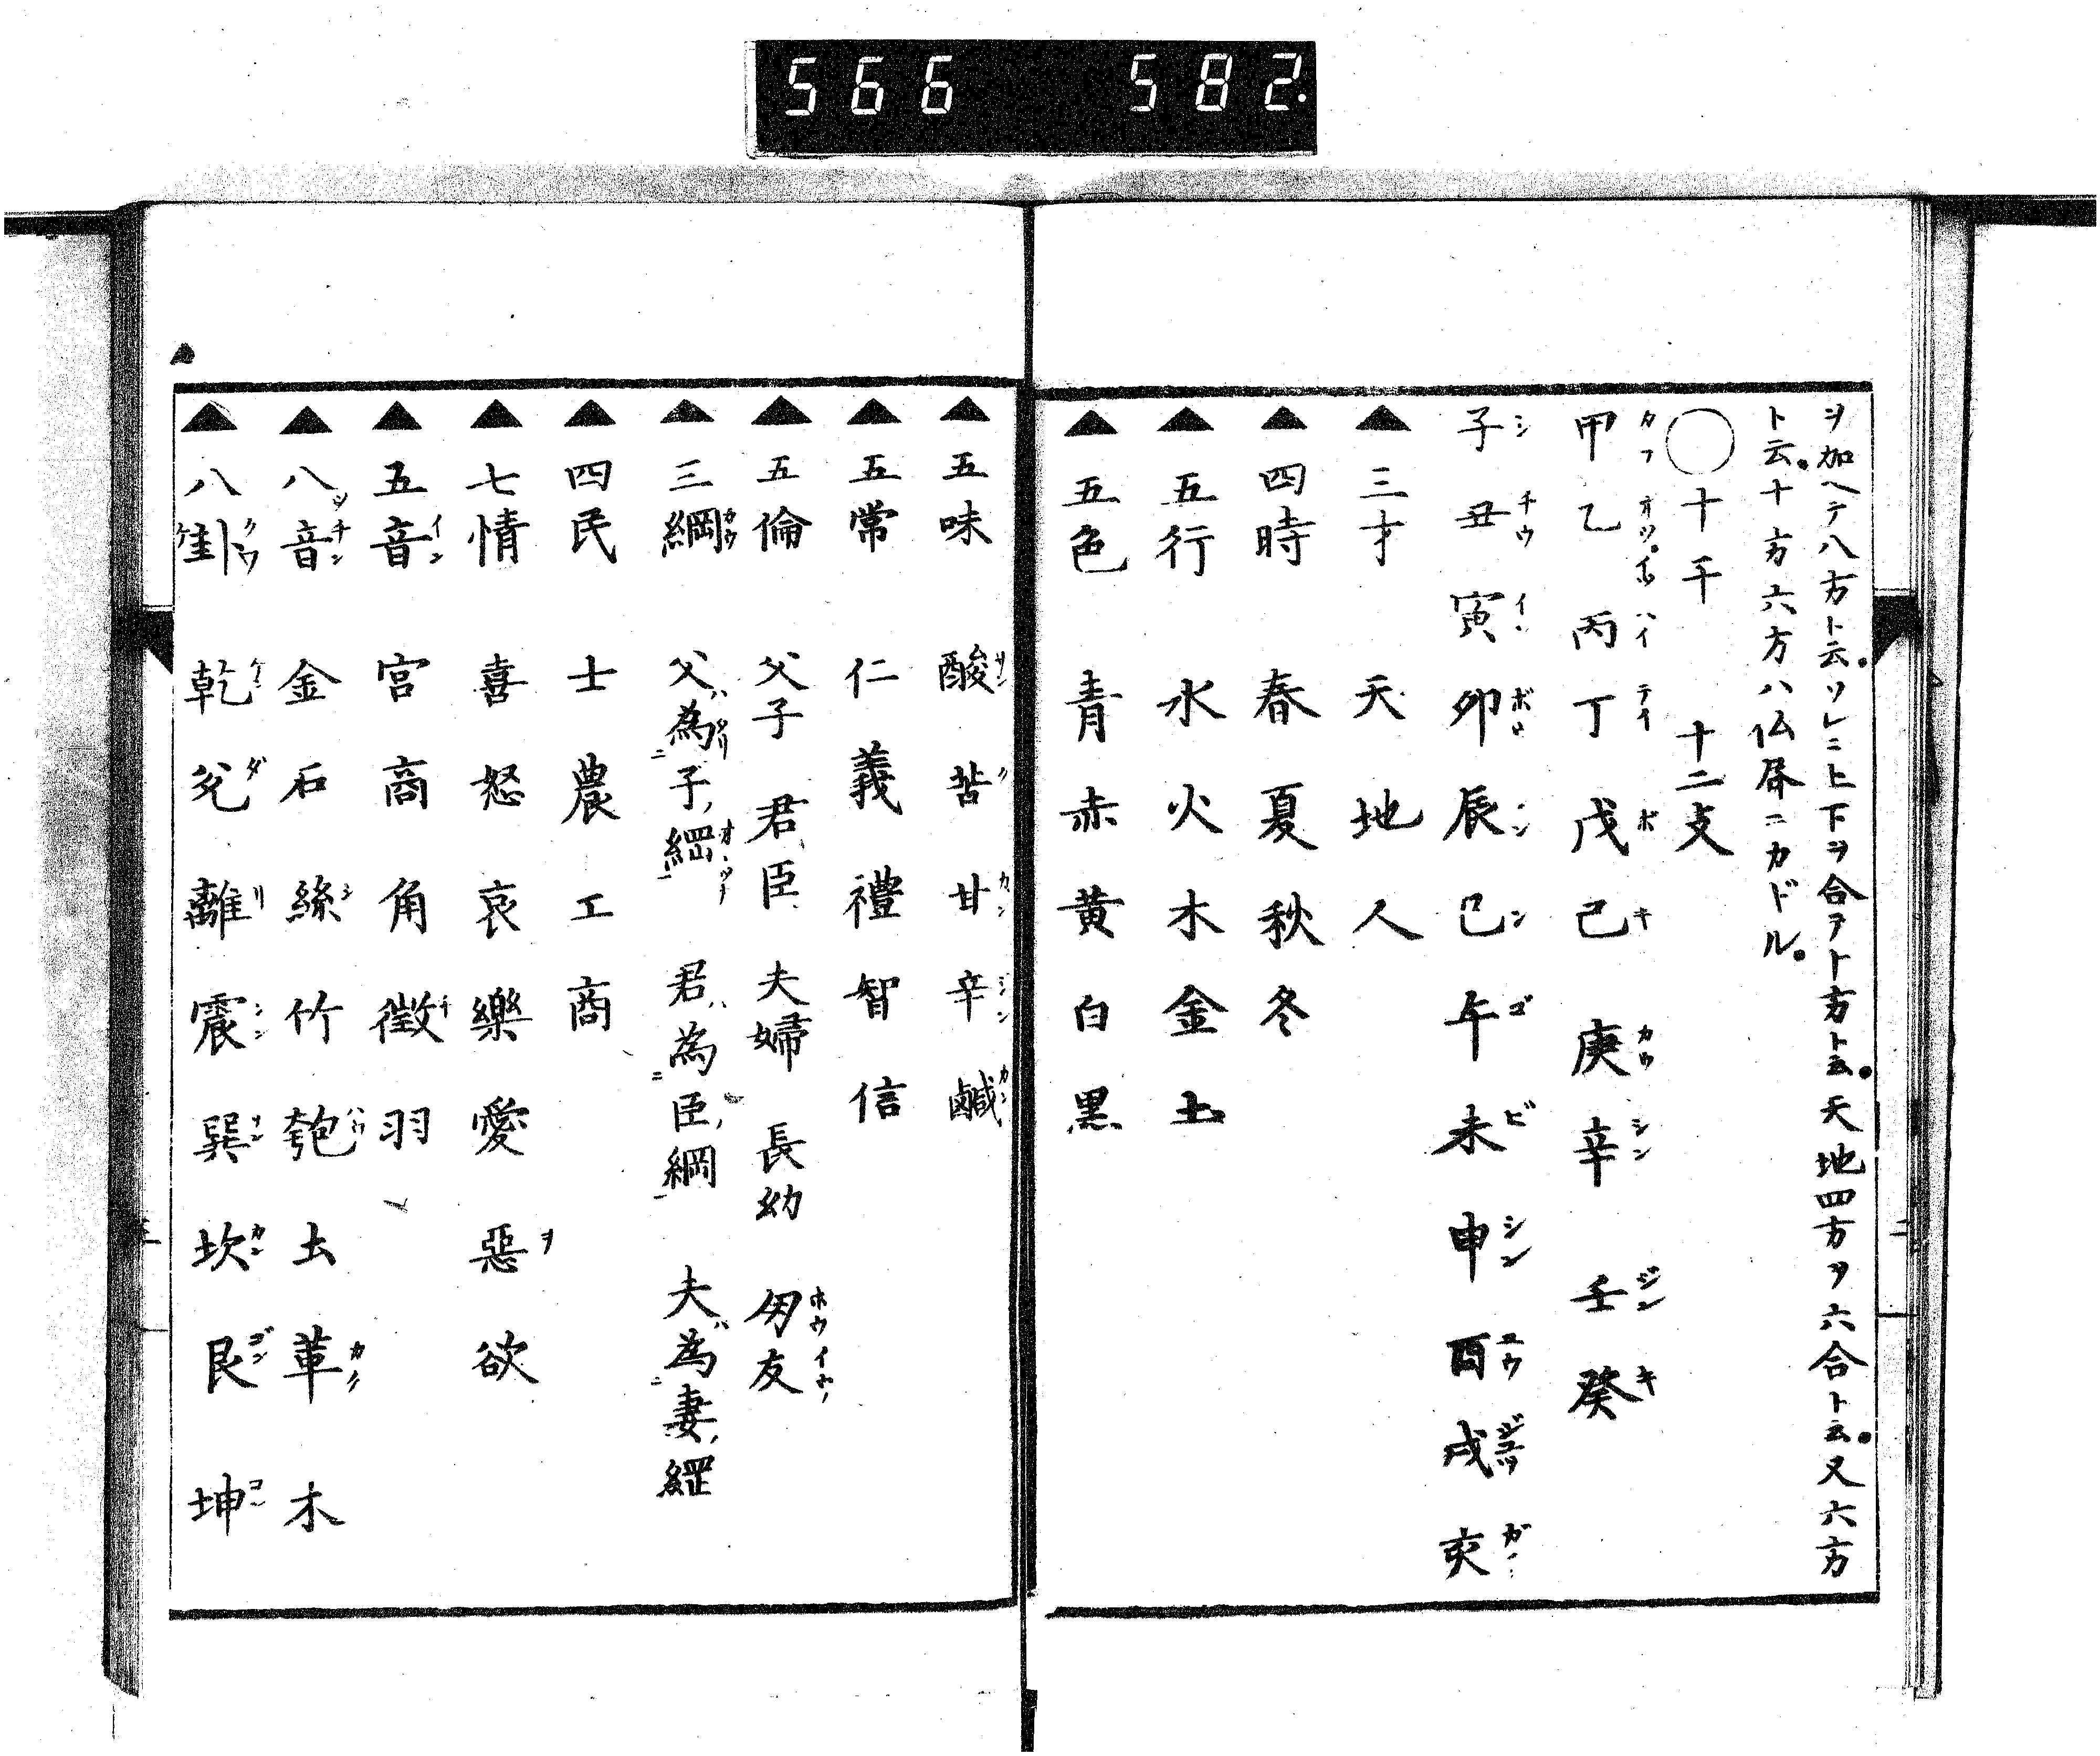 566 582.
ヲ加ヘテ八方ト云。ソレニ上下ヲ合テ十方ト云。天地四方ヲ六合ト云。又六方
ト云。十方六方ハ仏居ニカドル。
〇十干 十二支
甲乙丙丁戊己庚辛壬癸
子丑寅卯辰巳午未申酉戌亥
▲三才 天地人
▲四時 春夏秋冬
▲五行 水火木金土
▲五色 青赤黄白黒
▲五味 酸苦甘辛鹹
▲五常 仁義禮智信
▲五倫 父子 君臣 夫婦 長幼 朋友
▲三綱 父ハ為子ノ綱 君ハ為臣ノ綱 夫ハ為妻ノ綱
▲四民 士農工商
▲七情 喜怒哀樂愛惡欲
▲五音 宮商角徴羽
▲八音 金石絲竹匏土革木
▲八卦 乾兌離震巽坎艮坤